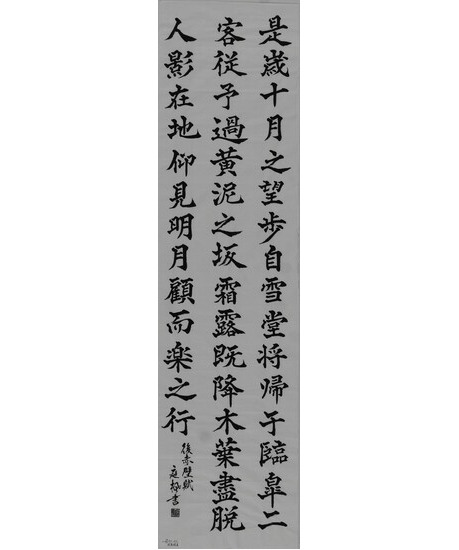 是歲十月之望步自雪堂将歸于臨皐二
客従予過黄泥之坂霜露既降木葉盡脱
人影在地仰見明月顧而楽之行
後赤壁賦
庭梅書